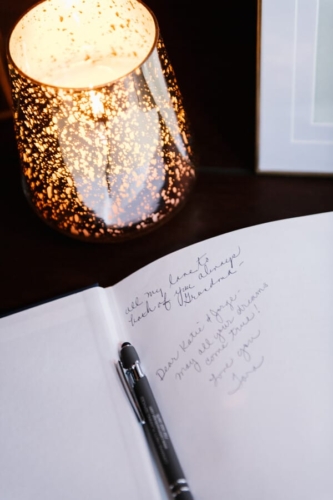 all my love to
both of you always
Grandma -
Dear Katie & Jorge.
may all your dreams
come true!
Love you
Tara